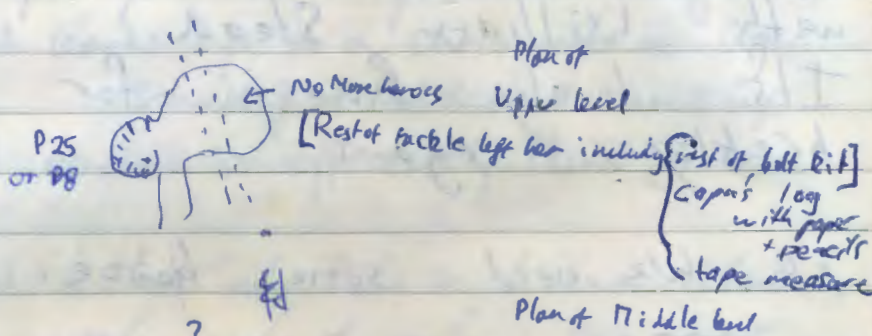 Plan of
Upper level
No More heroes
[Rest of tackle left here including rest of bolt kit]
P25
or P8
log
with paper
+ pencils
tape measure
?
Plan of Middle level